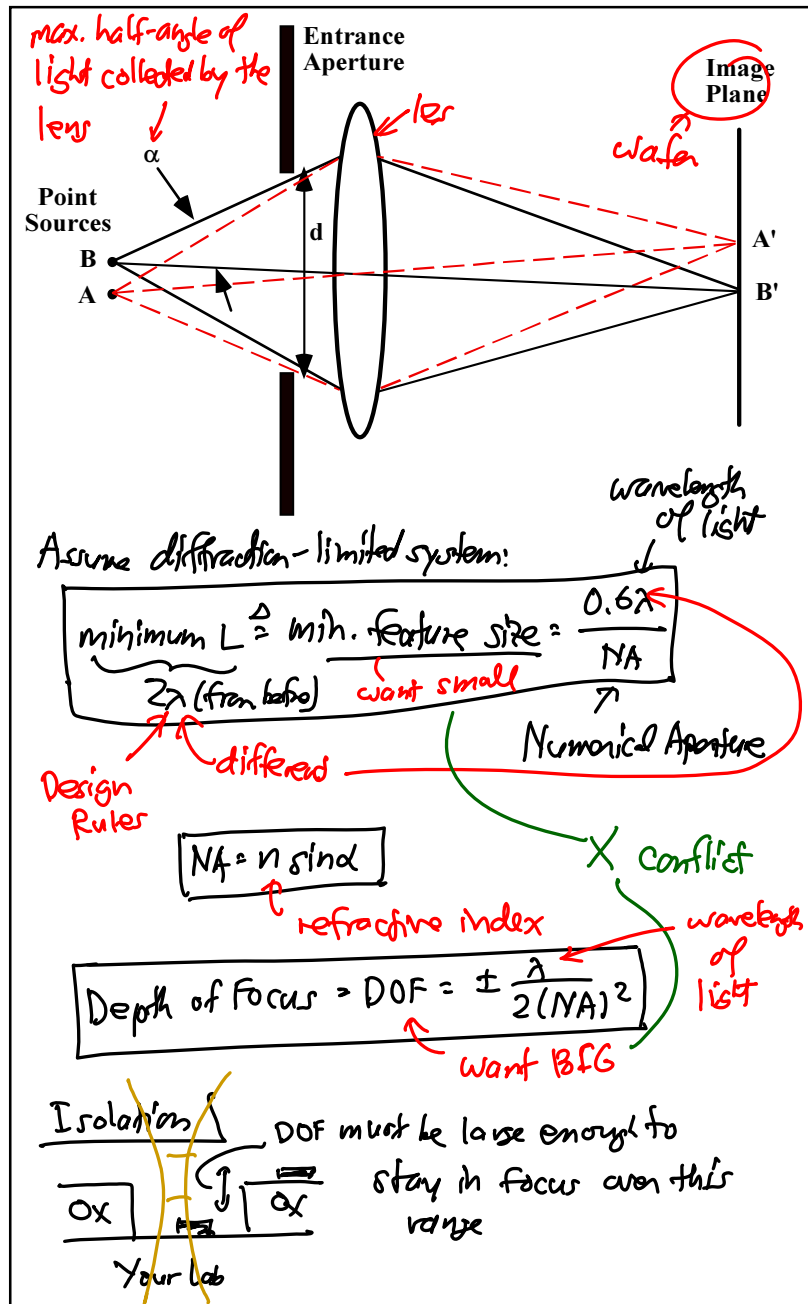 max. half-angle of
light collected by the
lens
Entrance
Aperture
Image
Plane
wafer
α
Point
Sources
d
B
A
A'
B'
wavelength
of light
Assume diffraction-limited system:
minimum L ≜ min. feature size = 0.6λ / NA
2λ (from before)
want small
Numerical Aperture
different
Design
Rules
NA = n sinα
X conflict
refractive index
wavelength
of
light
Depth of Focus = DOF = ± λ / 2(NA)²
want BIG
Isolation
DOF must be large enough to
stay in focus over this
range
Ox
Ox
Your Lab